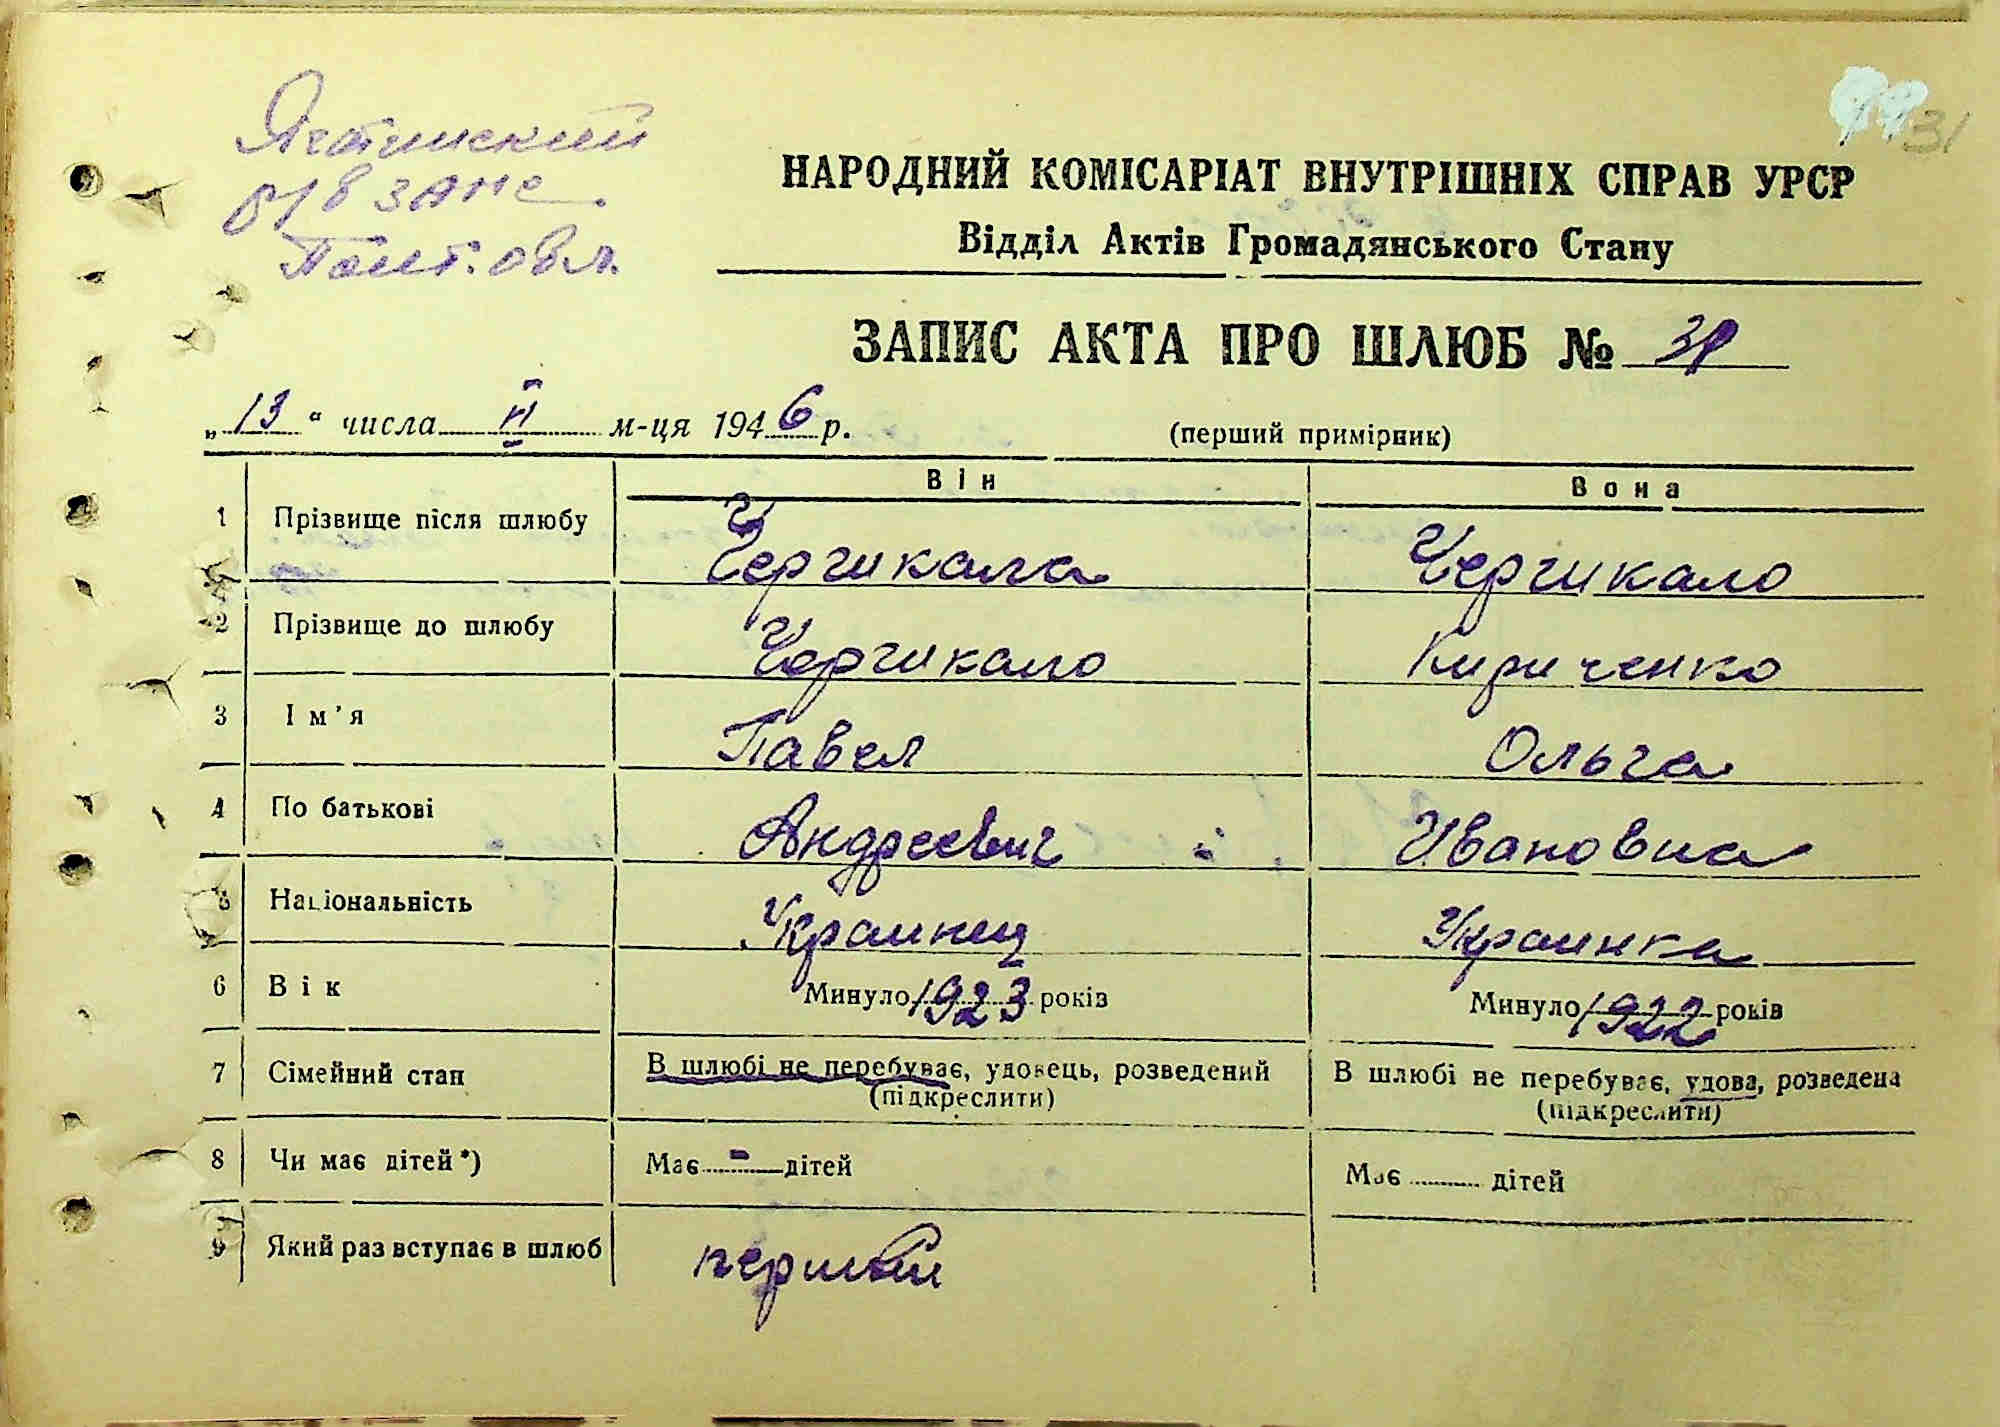 Яготинский
р/в ЗАГС
Полт. обл.
31
НАРОДНИЙ КОМІСАРІАТ ВНУТРІШНІХ СПРАВ УРСР
Відділ Актів Громадянського Стану
ЗАПИС АКТА ПРО ШЛЮБ № 31
„ 13 “ числа II м-ця 1946 р.
(перший примірник)
Він Вона
1 Прізвище після шлюбу Чергикала Чергикало
2 Прізвище до шлюбу Чергикало Кириченко
3 Ім'я Павел Ольга
4 По батькові Андреевич Ивановна
5 Національність Украинец Украинка
6 Вік Минуло 1923 років Минуло 1922 років
7 Сімейний стан В шлюбі не перебуває, удовець, розведений В шлюбі не перебуває, удова, розведена
(підкреслити) (підкреслити)
8 Чи має дітей*) Має - дітей Має дітей
9 Який раз вступає в шлюб первый